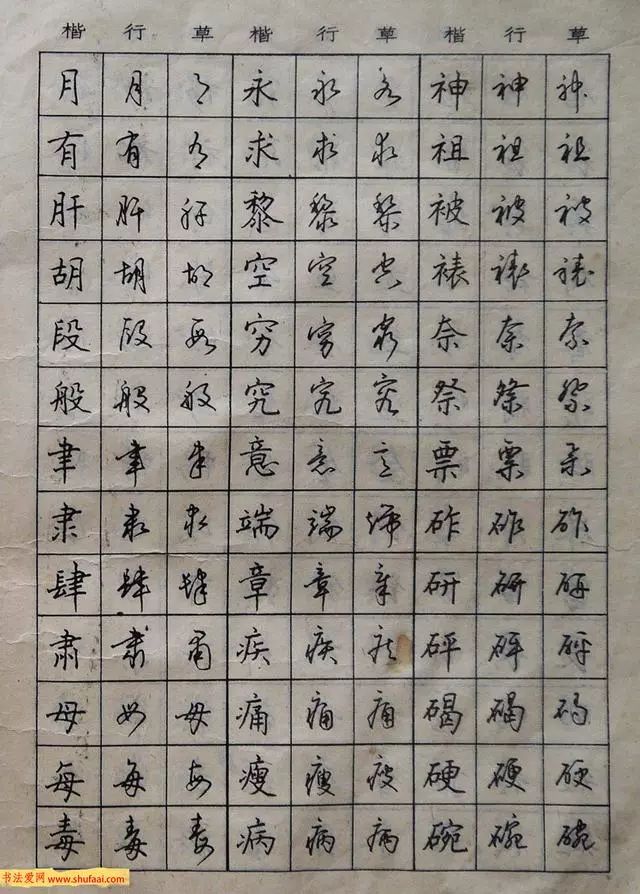 楷 行 草 楷 行 草 楷 行 草
月 月 月 永 永 永 神 神 神
有 有 有 求 求 求 祖 祖 祖
肝 肝 肝 黎 黎 黎 被 被 被
胡 胡 胡 空 空 空 裱 裱 裱
段 段 段 穷 穷 穷 奈 奈 奈
般 般 般 究 究 究 祭 祭 祭
聿 聿 聿 意 意 意 票 票 票
隶 隶 隶 端 端 端 砟 砟 砟
肆 肆 肆 章 章 章 研 研 研
肃 肃 肃 疾 疾 疾 砰 砰 砰
母 母 母 痛 痛 痛 碣 碣 碣
每 每 每 瘦 瘦 瘦 硬 硬 硬
毒 毒 毒 病 病 病 碗 碗 碗
书法爱网
www.shufaai.com